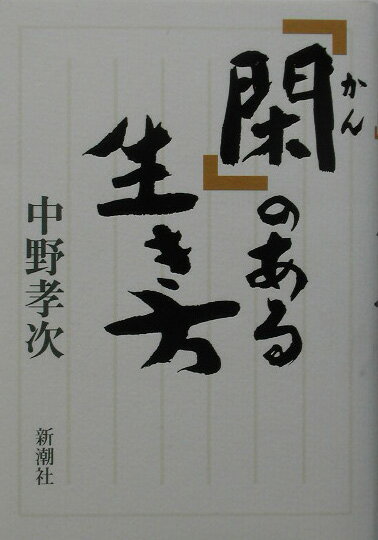 「閑」のある
かん
生き方
中野孝次
新潮社